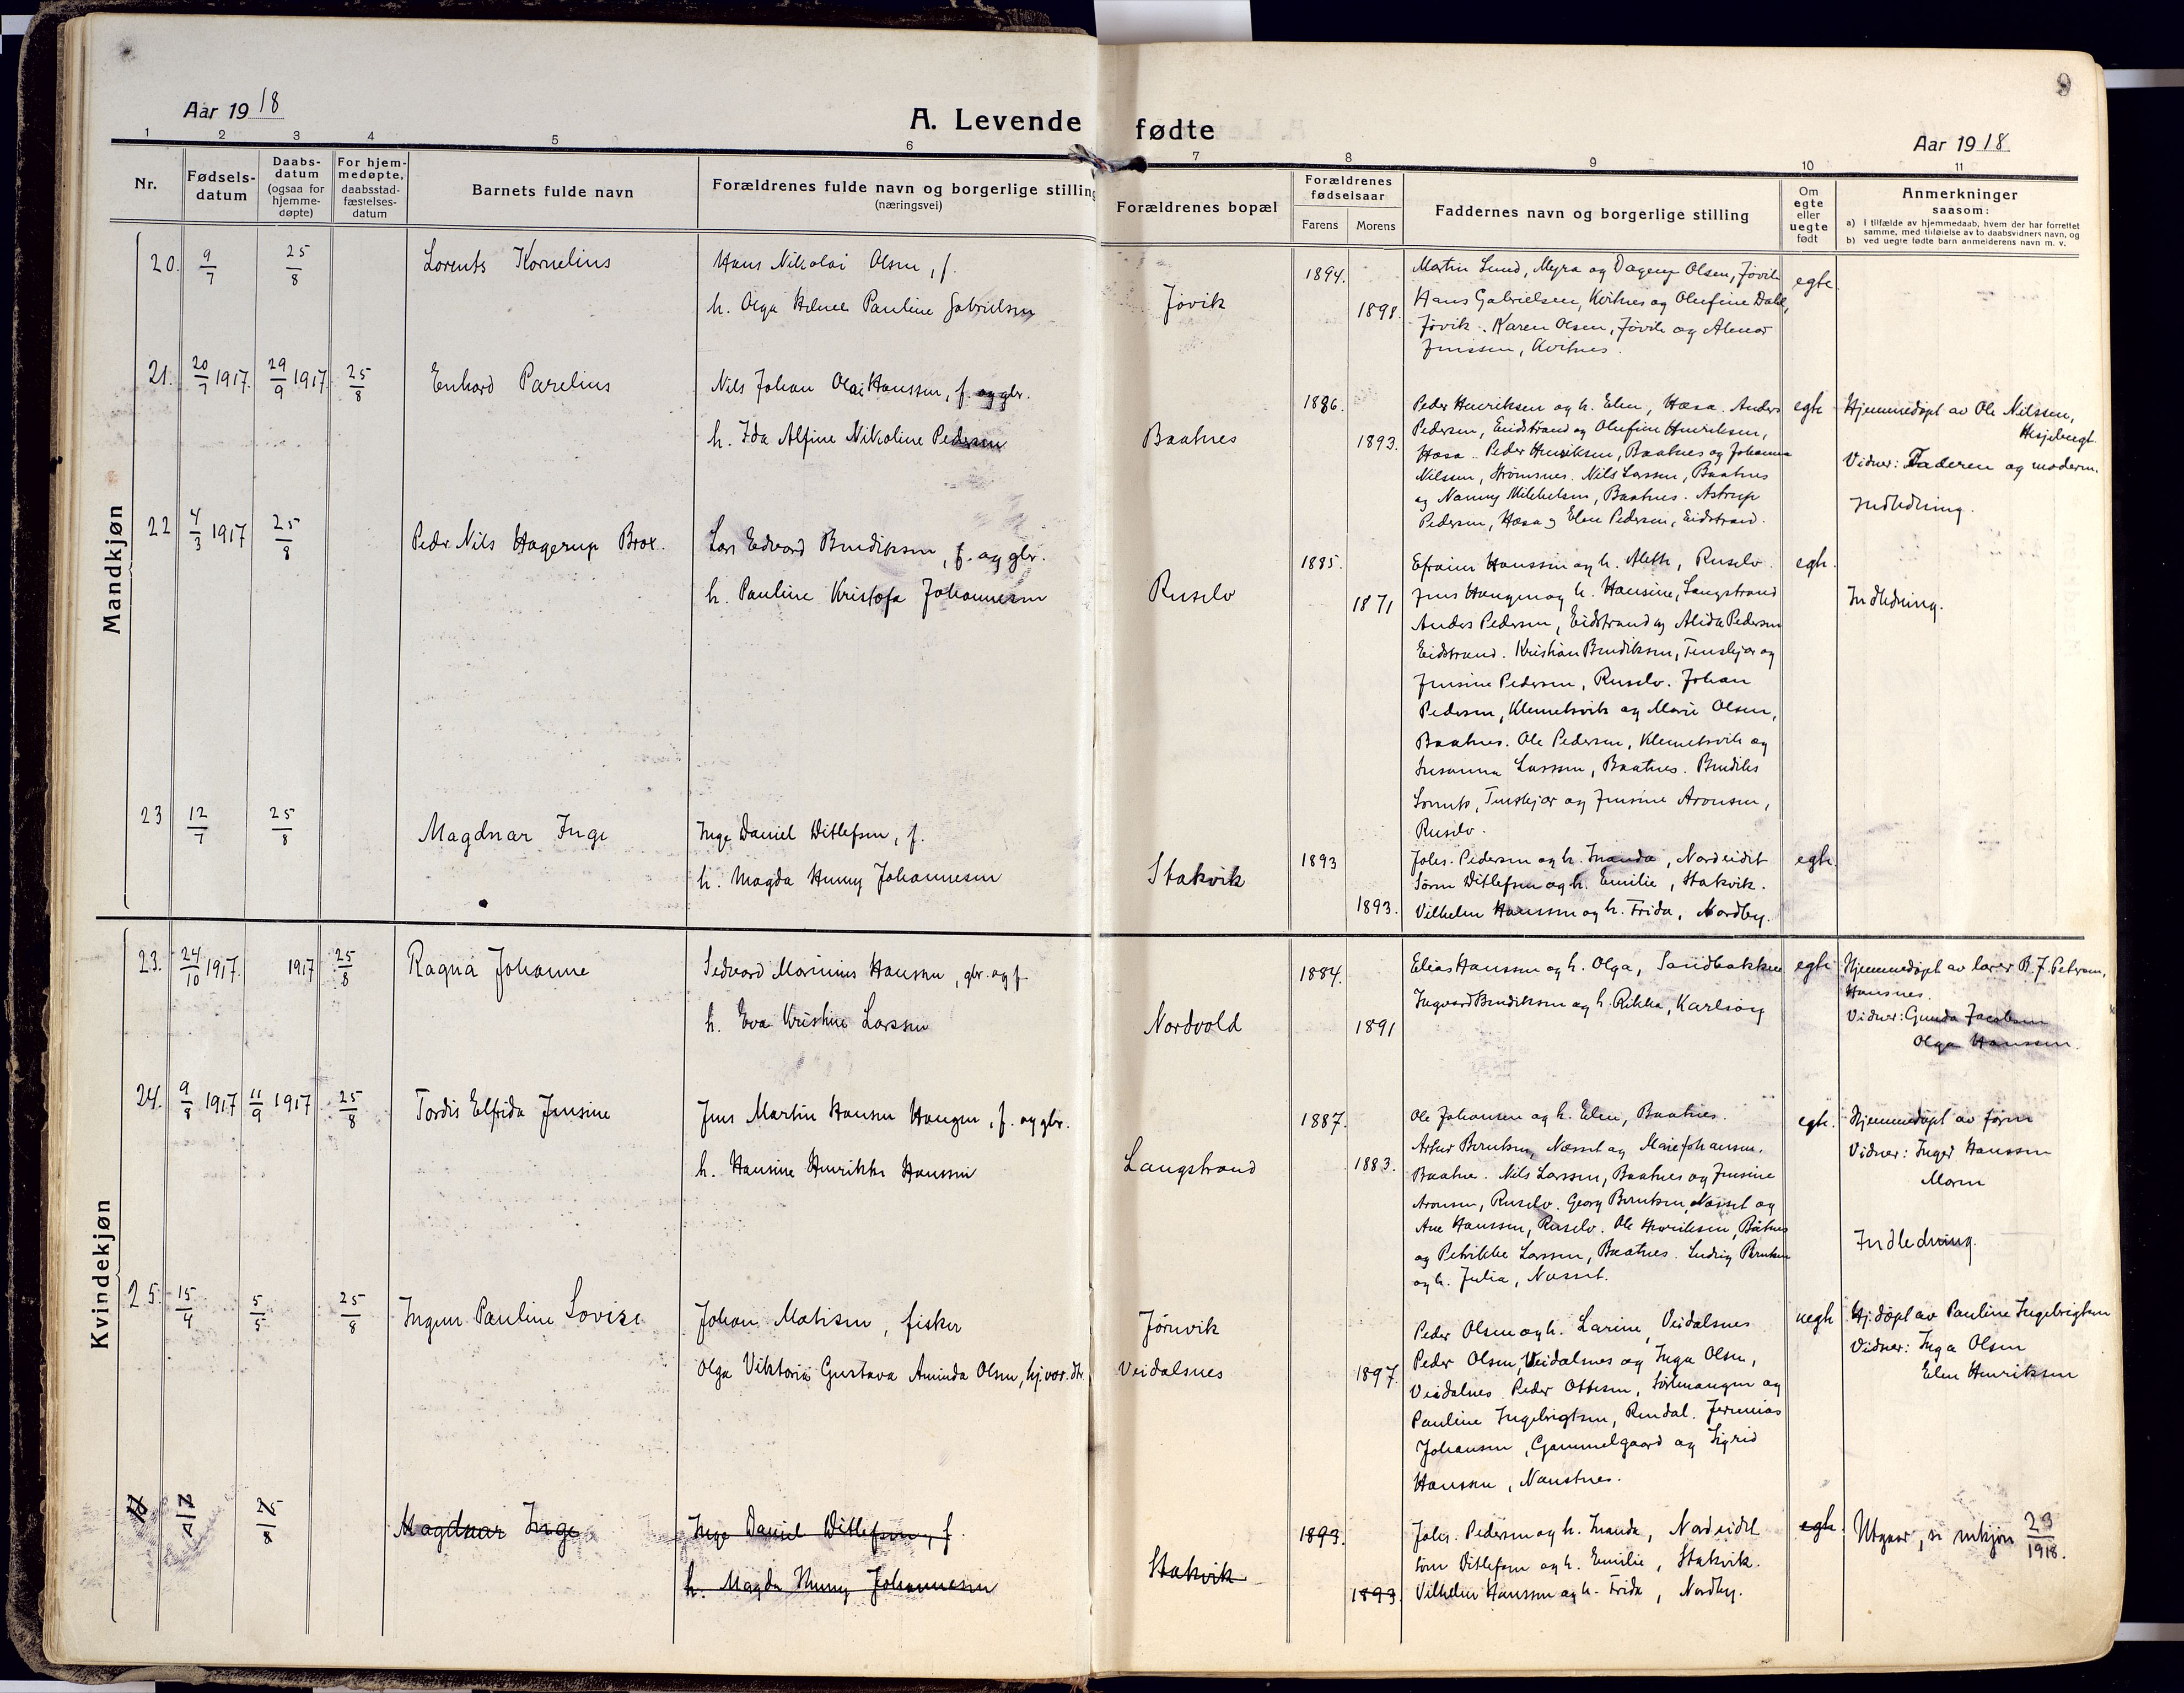 9
Aar 1918
A. Levende fødte
Aar 1918.
1 2 3 4 5 6 7 8 9 10 11
Nr.
Fødsels-
datum
Daabs-
datum
(ogsaa for
hjemme-
døpte)
For hjem-
medøpte,
daabsstad-
fæstelses-
datum
Barnets fulde navn
Forældrenes fulde navn og borgerlige stilling
(næringsvei)
Forældrenes bopæl
Forældrenes
fødselsaar
Farens
Morens
Faddernes navn og borgerlige stilling
Om
egte
eller
uegte
født
Anmerkninger
saasom:
a) i tilfælde av hjemmedaab, hvem der har forrettet
samme, med tilføielse av to daabsvidners navn, og
b) ved uegte fødte barn anmelderens navn m. v.
Mandkjøn
20. 9/7 25/8
Lorents Kornelius
Hans Nikolai Olsen, f.
h. Olga Pauline Gabrielsen
Jøvik
1894.
1898.
Martin Lund, Myra og Dagny Olsen, Jøvik
Hans Gabrielsen, Kvitnes og Olufine Dahl,
Jøvik. Karen Olsen, Jøvik og
Jenssen, Kvitnes.
egte.
21. 20/7 1917. 29/9 1917 25/8
Enhard Parelius
Nils Johan Olai Hanssen, f. og gbr.
h. Ida Alfine Nikoline Pedersen
Baatnes
1886.
1893.
Peder Henriksen og h. Elen, Hæsa. Anders
Pedersen, Eidstrand og Olufine Henriksen,
Hæsa. Peder Henriksen, Baatnes og Johanna
Nilssen, Strømsnes. Nils Larssen, Baatnes
og Nanny Mikkelsen, Baatnes. Astrup
Pedersen, Hæsa og Elen Pedersen, Eidstrand.
egte
Hjemmedøpt av Ole Nilssen,
Vidner: Faderen og moderen.
Indledning.
22 4/3 1917 25/8
Peder Nils Hagerup Brox.
Lars Edvard Bendiksen, f. og gbr.
h. Pauline Kristofa Johannesen
Ruselv
1885.
1871
Efraim Hanssen og h. Aleth, Ruselv.
Jens Haugen og h. Hansine, Langstrand
Anders Pedersen, Eidstrand og Alida Pedersen
Eidstrand. Kristian Bendiksen, Tenskjær og
Jensine Pedersen, Ruselv. Johan
Pedersen, Klemetsvik og Marie Olsen,
Baatnes. Ole Pedersen, Klemetsvik og
Susanna Larssen, Baatnes. Bendiks
Lorents, Tenskjær og Jensine Aronsen,
Ruselv.
egte.
Indledning.
23 12/7 25/8
Magdnar Inge
Inge Daniel Ditlefsen, f.
h. Magda Henny Johannesen
Stakvik
1893
1893.
Johs. Pedersen og h. Inanda, Nordeidet
Søren Ditlefsen og h. Emilie, Stakvik.
Vilhelm Hanssen og h. Frida, Nordby.
egte.
Kvindekjøn
23. 24/10 1917. 1917 25/8
Ragna Johanne
Sedvard Marinius Hanssen, gbr. og f
h. Eva Kristine Larssen
Nordvold
1884.
1891
Elias Hanssen og h. Olga, Sandbakken
Ingvard Bendiksen og h. Rikka, Karlsøy
egte
Hjemmedøpt av lærer B. J. Petersen,
Hansnes.
Vidner: Gunda Jacobsen
Olga Hanssen.
24. 9/8 1917 11/9 1917 25/8
Tordis Elfrida Jensine
Jens Martin Hansen Haugen, f. og gbr.
h. Hansine Henrikke Hanssen
Langstrand
1887.
1883.
Ole Johansen og h. Elen, Baatnes.
Arthur Berntsen, Næsset og Marie Johansen,
Baatne. Nils Larssen, Baatnes og Jensine
Aronsen, Ruselv. Georg Berntsen, Næsset og
Ane Hanssen, Ruselv. Ole Henriksen, Båtnes
og Petrikke Larssen, Baatnes. Ludvig Berntsen
og h. Julia, Næsset.
egte.
Hjemmedøpt av faren
Vidner: Inger Hanssen
Moren
Indledning.
25. 15/4 5/5 25/8
Ingun Pauline Lovise
Johan Matisen, fisker
Olga Viktoria Gustava Aminda Olsen, hj.vær. dtr.
Jørnvik
Veidalsnes
1897.
Peder Olsen og h. Larine, Veidalsnes
Peder Olsen, Veidalsnes og Inga Olsen,
Veidalnes. Peder Ottesen, Sørlenangen og
Pauline Ingebrigtsen, Rendal. Jermias
Johansen, Gammelgaard og Sigrid
Hanssen, Naustnes.
uegte
Hj.døpt av Pauline Ingebrigtsen
Vidner: Inga Olsen
Elen Henriksen
12/7 25/8
Magdnar Inge
Inge Daniel Ditlefsen, f.
h. Magda Henny Johannesen
Stakvik
1893.
1893.
Johs. Pedersen og h. Inanda, Nordeidet
Søren Ditlefsen og h. Emilie, Stakvik.
Vilhelm Hanssen og h. Frida, Nordby.
egte.
Utgaar, se mkjøn 23/1918.